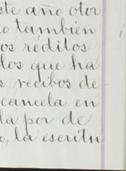 ste año otor
o también
os réditos
los que ha
s recibos de
cancela en
la por de
o, la escritu